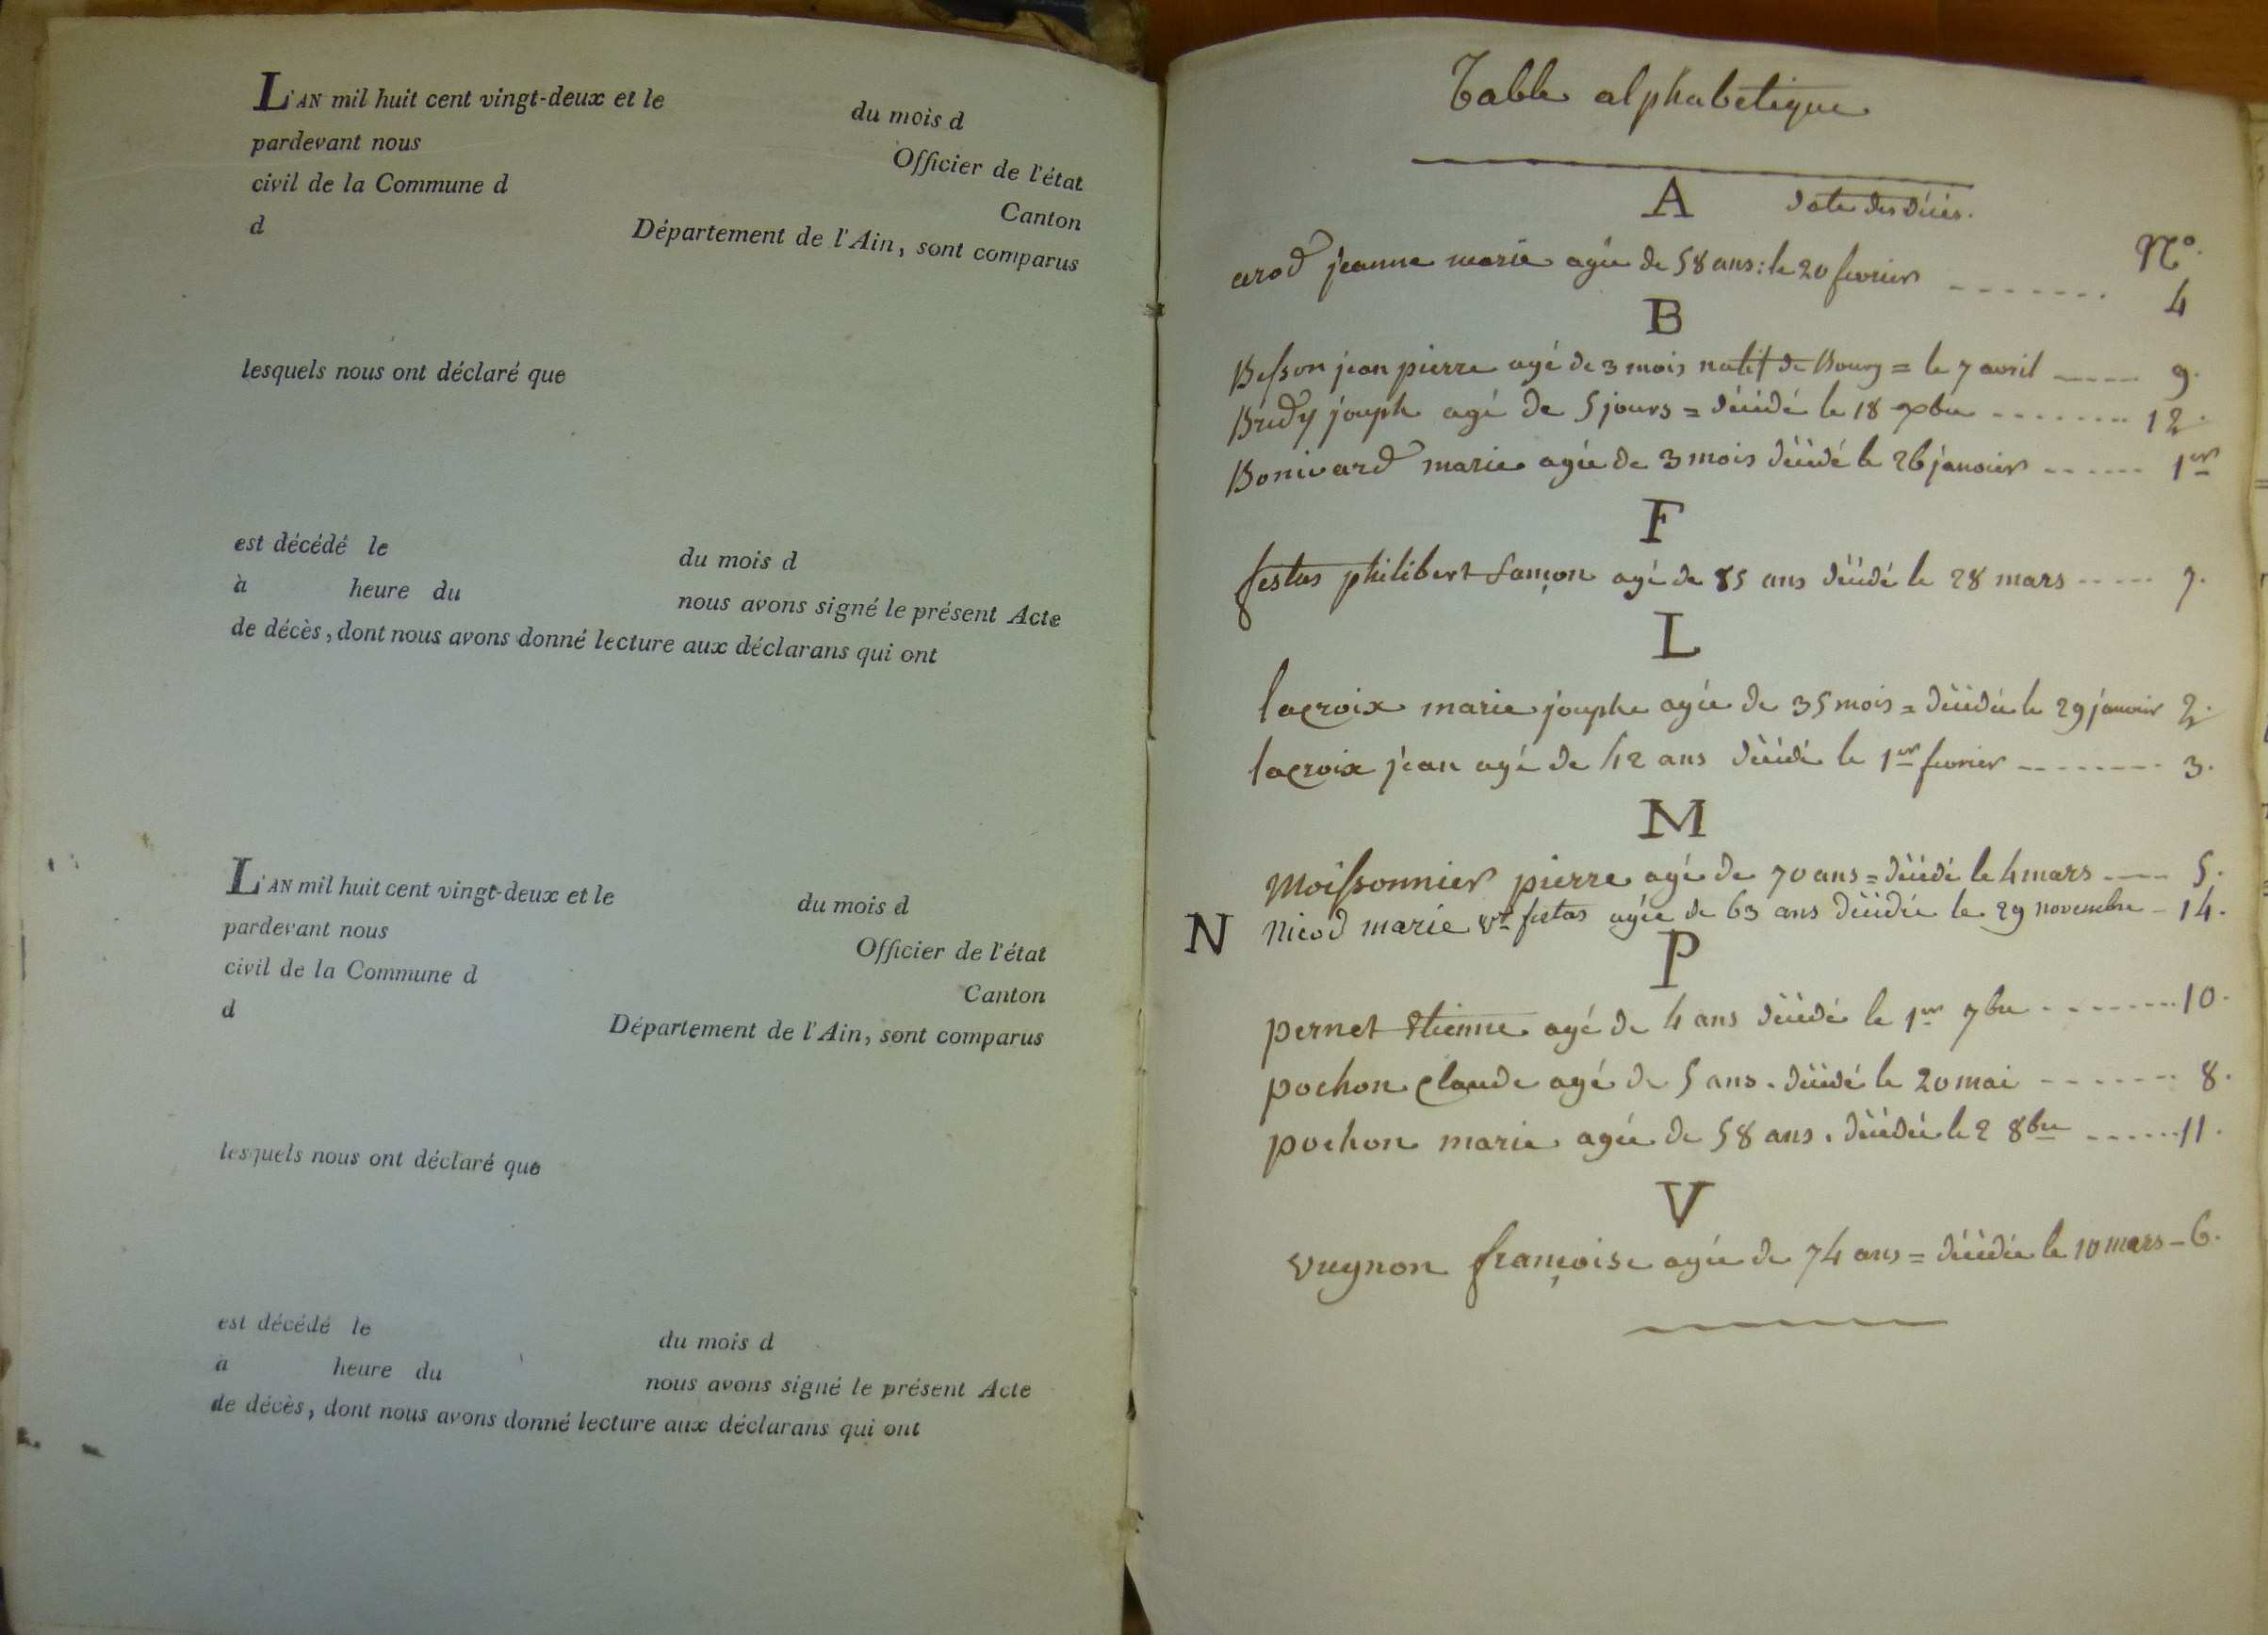 L'AN mil huit cent vingt-deux et le du mois d
pardevant nous Officier de l'état
civil de la Commune d Canton
d Département de l'Ain, sont comparus
lesquels nous ont déclaré que
est décédé le du mois d
à heure du nous avons signé le présent Acte
de décès, dont nous avons donné lecture aux déclarans qui ont
L'AN mil huit cent vingt-deux et le du mois d
pardevant nous Officier de l'état
civil de la Commune d Canton
d Département de l'Ain, sont comparus
lesquels nous ont déclaré que
est décédé le du mois d
à heure du nous avons signé le présent Acte
de décès, dont nous avons donné lecture aux déclarans qui ont
Table alphabetique
A date des décés.
N.º
arod jeanne marie agée de 58 ans : le 20 fevrier ------- 4
B
Besson jean pierre agé de 3 mois natif de Bourg = le 7 avril ----- 9.
Bridy joseph agé de 5 jours = décédé le 18 9bre -------- 12.
Bonivard marie agée de 3 mois décédé le 26 janvier ------ 1er
F
festas philibert samson agé de 85 ans décédé le 28 mars ----- 7.
L
lacroix marie josephe agée de 35 mois = décédée le 29 janvier 2.
lacroix jean agé de 42 ans décédé le 1er fevrier -------- 3.
M
Moissonnier pierre agé de 70 ans = décédé le 4 mars ---- 5.
N nicod marie ve festas agée de 63 ans décédée le 29 novembre - 14.
P
pernet etienne agé de 4 ans décédé le 1er 7bre -------- 10.
pochon claude agé de 5 ans. décédé le 20 mai ------- 8.
pochon marie agée de 58 ans. décédée le 2 8bre ------ 11.
V
vugnon françoise agée de 74 ans = décédée le 10 mars - 6.